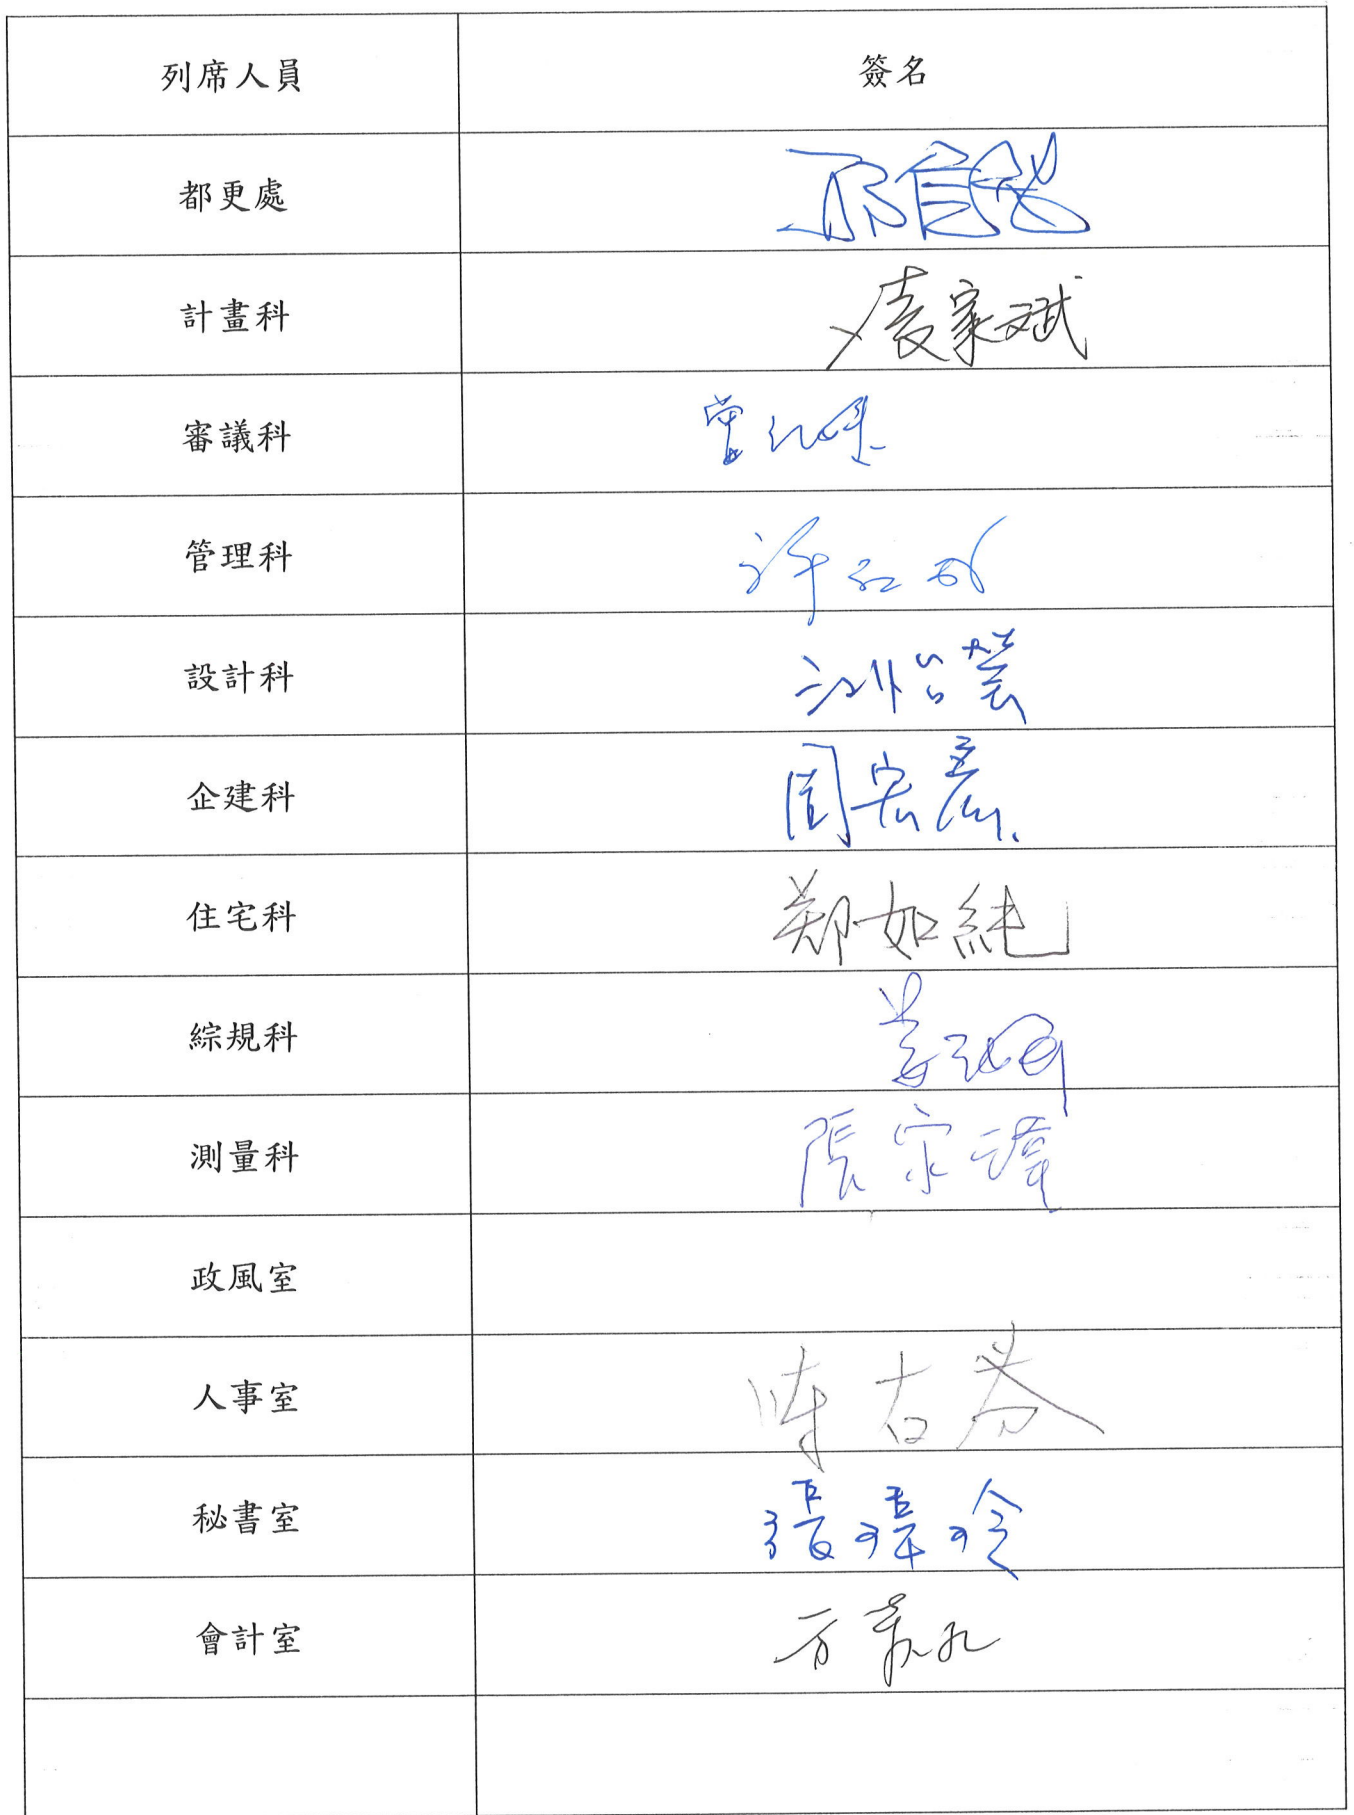 列席人員 簽名
都更處
計畫科 家斌
審議科 曾
管理科 許
設計科 江怡
企建科 周宏彥
住宅科 鄭如純
綜規科 姜
測量科 張宗瑋
政風室
人事室 陳古芬
秘書室 張瑋玲
會計室 方